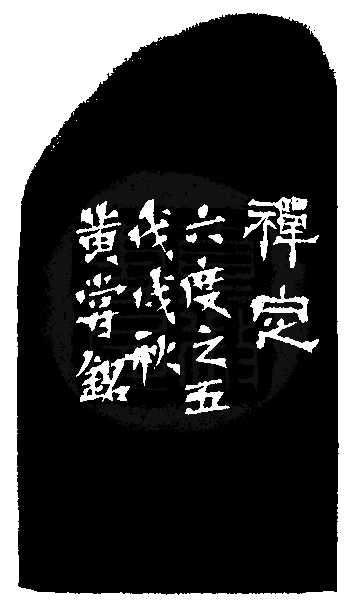 禪定
六度之五
戊戌秋
黃嘗銘